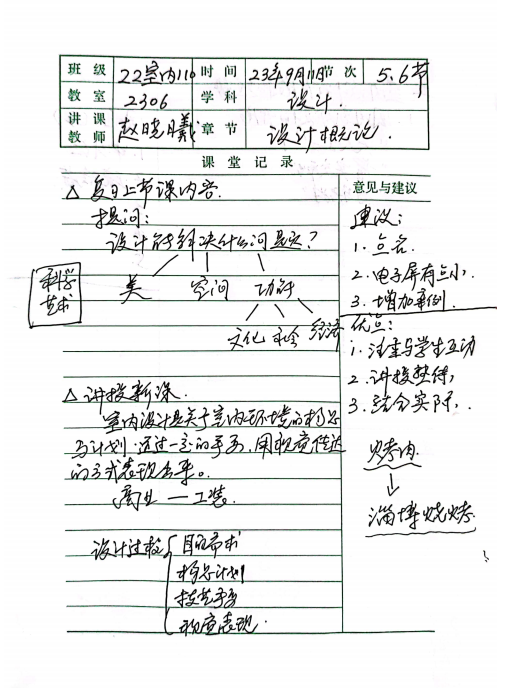 班级 22室内110 时间 23年9月11日 节次 5.6节
教室 2306 学科 设计.
讲课教师 赵晓曦 章节 设计概论.
课堂记录
意见与建议
△ 复习上节课内容.
提问:
设计能解决什么问题?
科学
艺术
美 空间 功能
文化 社会 经济
△ 讲授新课.
室内设计是关于室内环境的构思
与计划.通过一定的手段,用视觉传达
的方式表现出来。
商业 — 工装.
设计过程 目的需求
构思计划
技艺手段
视觉表现.
建议:
1. 点名.
2. 电子屏有点小.
3. 增加案例.
优点:
1. 注重与学生互动
2. 讲授热情,
3. 结合实际,.
烤肉
↓
淄博烧烤.